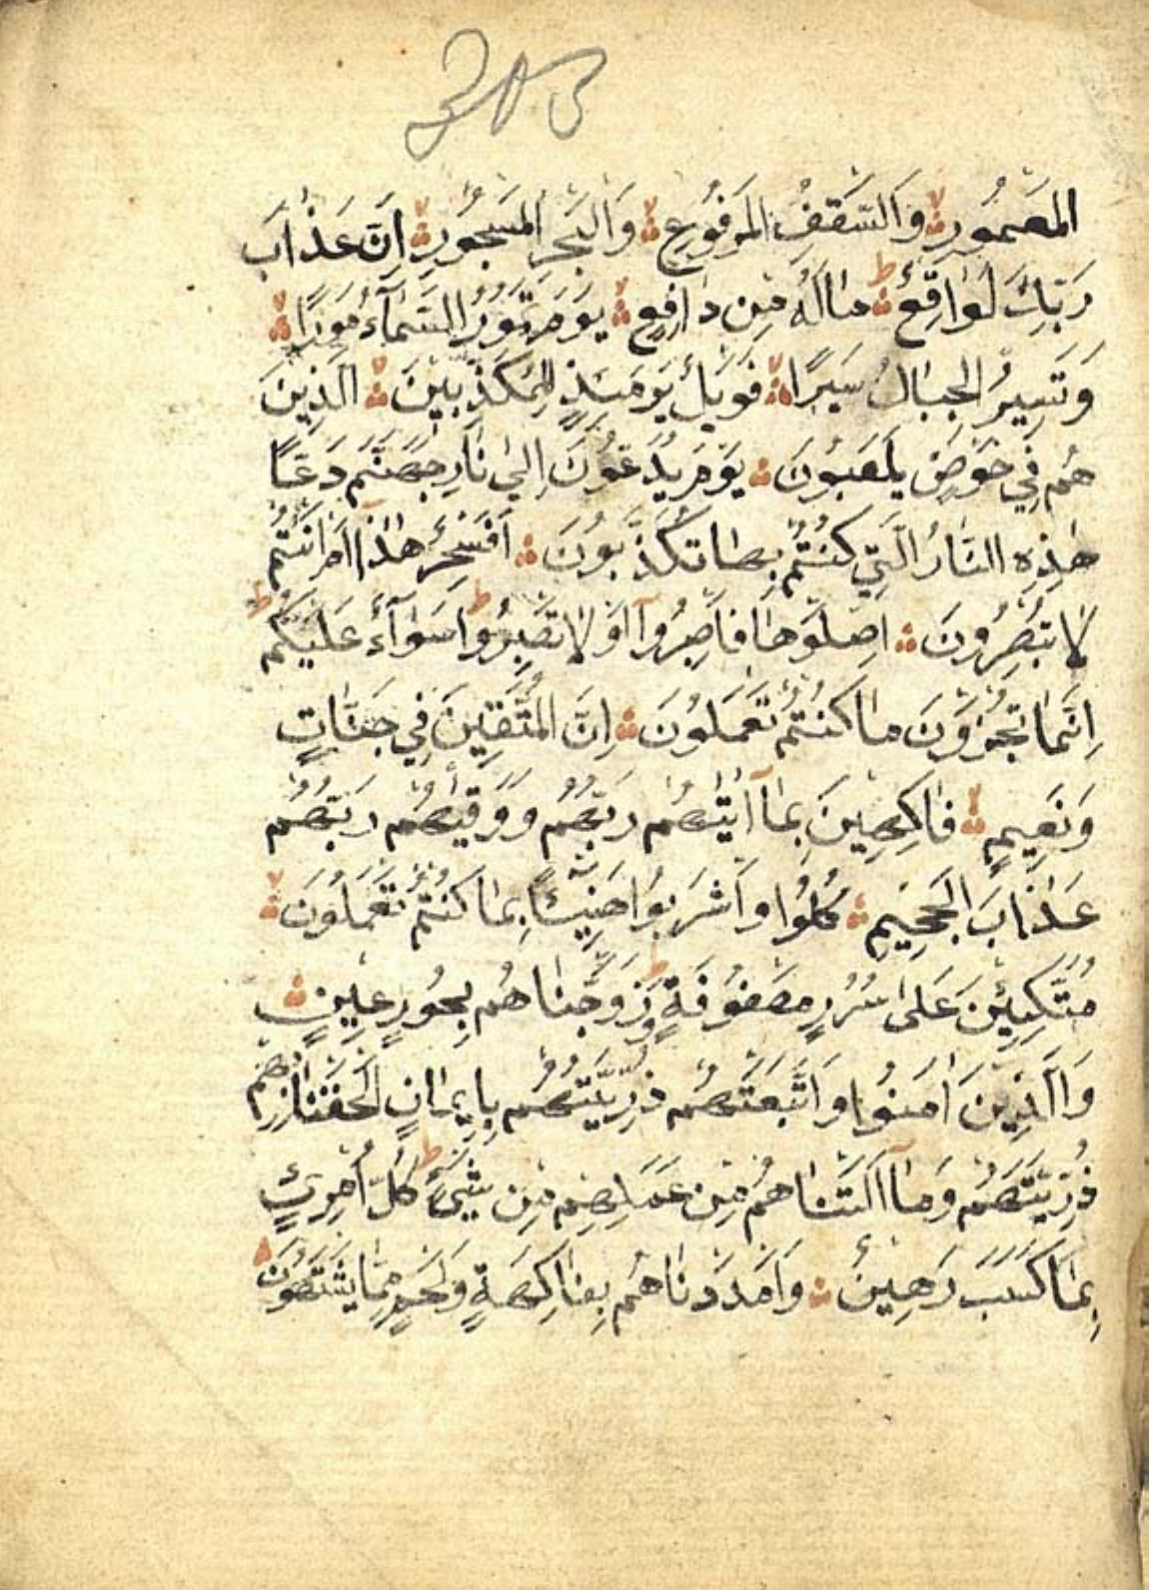 المَعمُورِ وَالسَّقفِ المَرفُوعِ وَالبَحرِ المَسجُورِ اِنَّ عَذابَ
رَبِّكَ لَوَاقِعٌ مالَهُ مِن دافِعٍ يَومَ تَمُورُ السَّمآءُ مَورًا
وَتَسِيرُ الجِبالُ سَيرًا فَوَيلٌ يَومَئِذٍ لِلمُكَذِّبينَ الَّذِينَ
هُم فِي خَوضٍ يَلعَبُونَ يَومَ يُدَعُّونَ اِلي نارِ جَهَنَّمَ دَعًّا
هٰذِهِ النّارُ الَّتِي كُنتُم بِها تُكَذِّبُونَ اَفَسِحرٌ هٰذا اَم اَنتُم
لا تُبصِرُونَ اِصلَوها فَاصبِرُوآ اَو لا تَصبِرُوا سَوآءٌ عَلَيكُم
اِنَّما تُجزَونَ ما كُنتُم تَعمَلُونَ اِنَّ المُتَّقِينَ فِي جَنّاتٍ
وَنَعِيمٍ فاكِهِينَ بِمآ اٰتيٰهُم رَبُّهُم وَوَقيٰهُم رَبُّهُم
عَذابَ الجَحِيمِ كُلُوا وَاشرَبُوا هَنِيئًا بِما كُنتُم تَعمَلُونَ
مُتَّكِئِينَ عَلىٰ سُرُرٍ مَصفُوفَةٍ وَزَوَّجناهُم بِحُورٍ عِينٍ
وَالَّذِينَ اٰمَنُوا وَاتَّبَعَتهُم ذُرِّيَّتُهُم بِاِيمانٍ اَلحَقنا بِهِم
ذُرِّيَّتَهُم وَمآ اَلَتناهُم مِن عَمَلِهِم مِن شَيءٍ كُلُّ امرِئٍ
بِما كَسَبَ رَهِينٌ وَاَمدَدناهُم بِفاكِهَةٍ وَلَحمٍ مِمّا يَشتَهُونَ